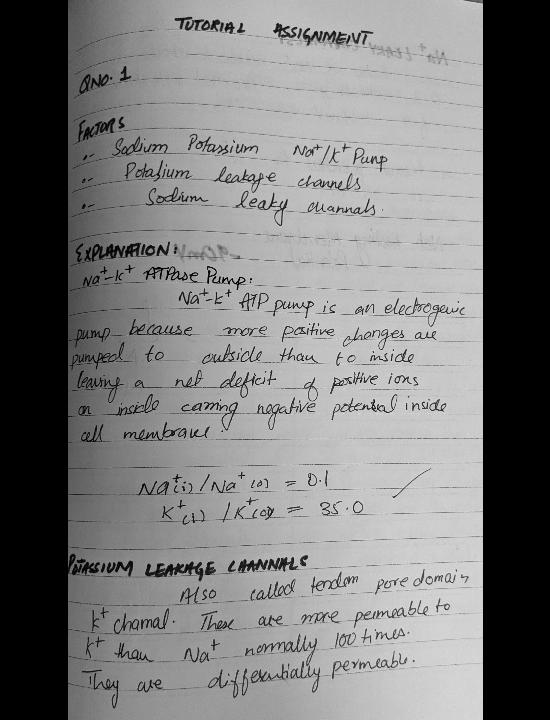 TUTORIAL ASSIGNMENT
QNO. 1
FACTORS
:- Sodium Potassium Na⁺/K⁺ Pump
:- Potassium leakage channels
:- Sodium leaky channals.
EXPLANATION:
Na⁺-K⁺ ATPase Pump:
Na⁺-K⁺ ATP pump is an electrogenic
pump because more positive charges are
pumped to outside than to inside
leaving a net deficit of positive ions
on inside carring negative potential inside
cell membrane.
Na⁺(i) / Na⁺(o) = 0.1
K⁺(i) / K⁺(o) = 35.0
POTASSIUM LEAKAGE CHANNALS
Also called tendom pore domain
K⁺ chamal. These are more permeable to
K⁺ than Na⁺ normally 100 times.
They are differentially permeable.